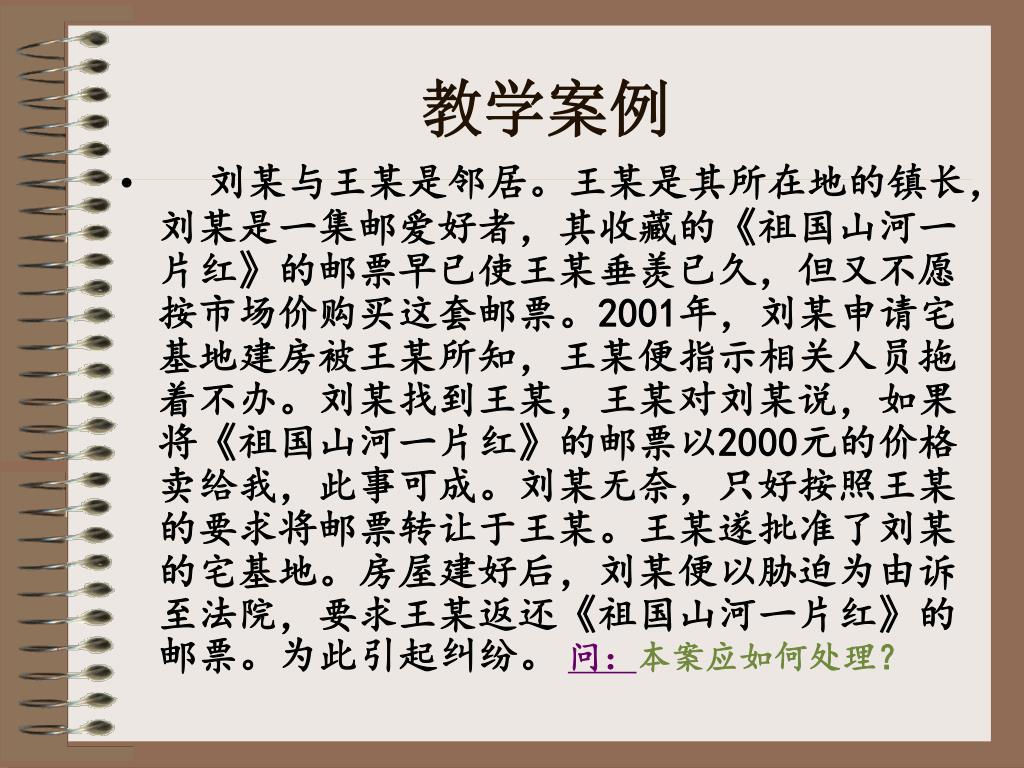 教学案例
• 刘某与王某是邻居。王某是其所在地的镇长，
刘某是一集邮爱好者，其收藏的《祖国山河一
片红》的邮票早已使王某垂羡已久，但又不愿
按市场价购买这套邮票。2001年，刘某申请宅
基地建房被王某所知，王某便指示相关人员拖
着不办。刘某找到王某，王某对刘某说，如果
将《祖国山河一片红》的邮票以2000元的价格
卖给我，此事可成。刘某无奈，只好按照王某
的要求将邮票转让于王某。王某遂批准了刘某
的宅基地。房屋建好后，刘某便以胁迫为由诉
至法院，要求王某返还《祖国山河一片红》的
邮票。为此引起纠纷。 问：本案应如何处理？